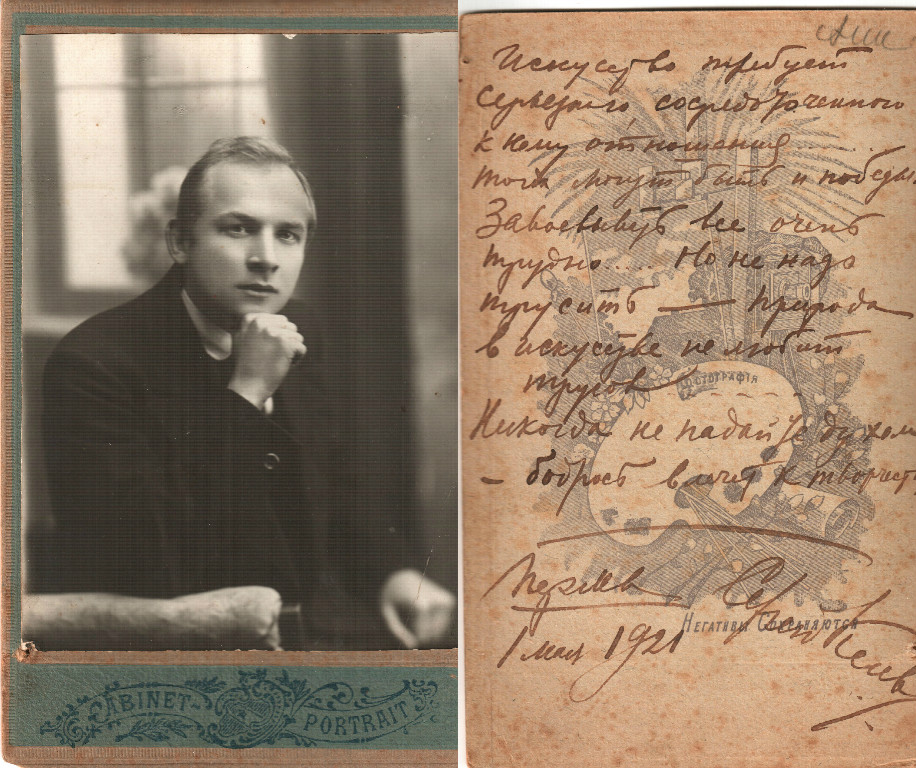 CABINET
PORTRAIT
Искусство требует
серьезного сосредоточенного
к нему отношения.......
тогда могут быть и победы
Завоевывать все очень
трудно..... Но не надо
трусить — природа
в искусстве не любит
трусов
Никогда не падайте духом
– бодрость влечет к творчеств
ФОТОГРАФІЯ
Пермь
НЕГАТИВЫ СОХРАНЯЮТСЯ
1 мая 1921